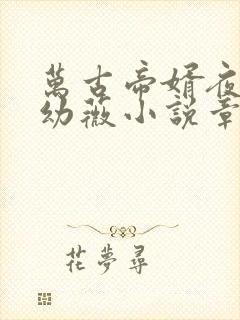 萬古帝婿夜
幼薇小說章
花夢尋